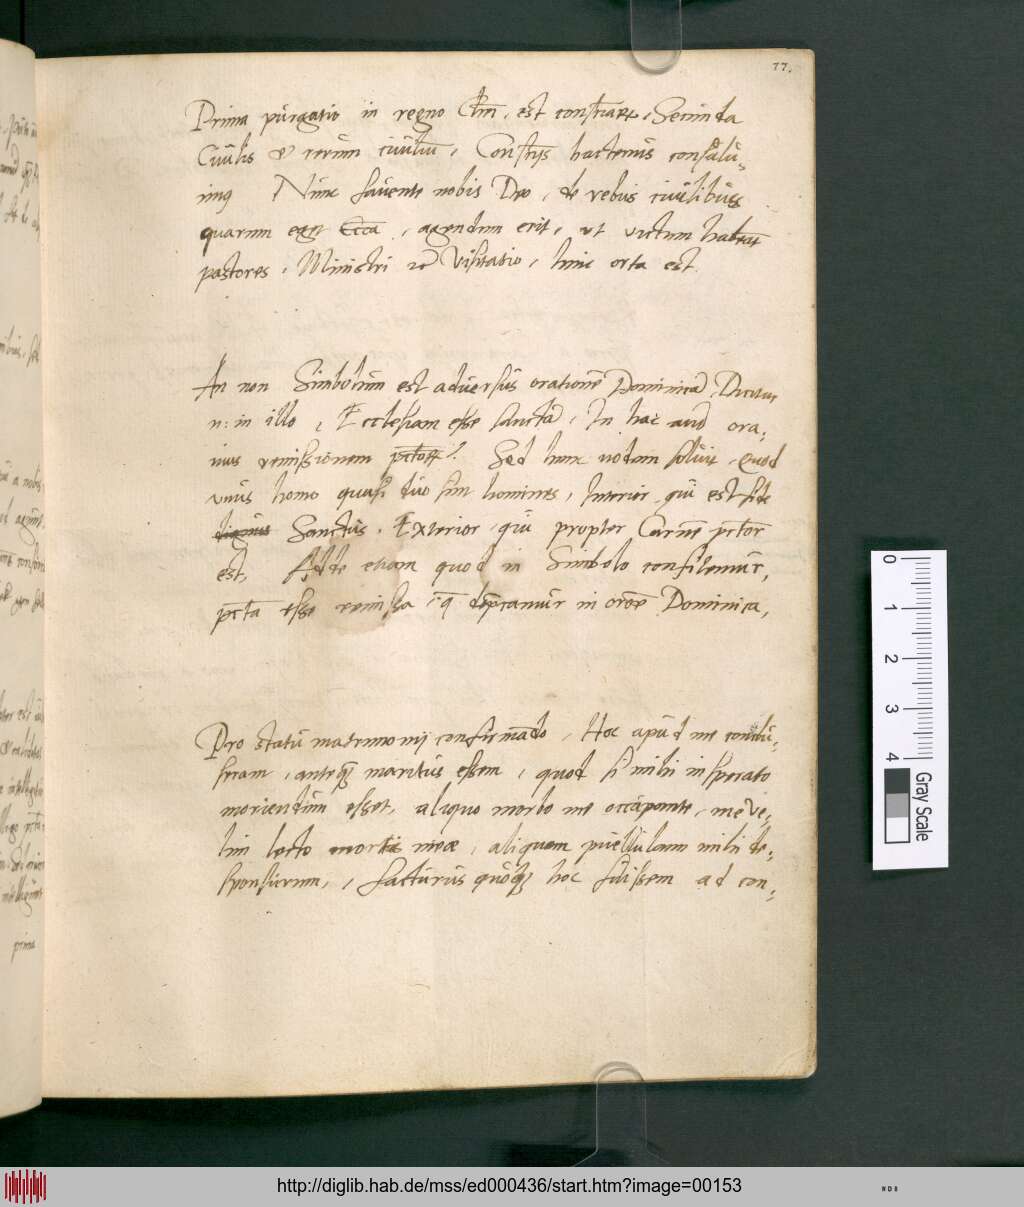 77.
Prima purgatio in regno Chri, est conscientiarum, Secunda
Civilis et rerum civilium, Consciis hactenus consului„
mus Nunc favente nobis Deo, de rebus civilibus
quarum eget Ecca, agendum erit, ut victum habeat
pastores, Ministri et Visitatio, hinc orta est
An non Simbolum est adversus orationē Dominicā, Dicitur
n: in illo, Ecclesiam esse sanctā, In hac aūd ora„
mus remissionem pctorum? Sed hunc nodum solvit, Quod
unus homo quasi duo sim homines, Interior qui est fide
Sanctus. Exterior, qui propter Carnē pctor
est, Adde etiam quod in Simbolo confitemur,
pctā esse remissa, q̄ dep̄camur in orōe Dominica,
Pro statū matrimonij confirmādo, Hoc apūd me constitu„
eram, anteq̄ maritus essem, quod si mihi insperato
moriendum esset, aliquo morbo me occupante, me ve„
lim lecto mortis meæ, aliquam puellulam mihi de„
sponsurum, facturus quoq̄ hoc fuissem ad con„
prima
0 1 2 3 4
Gray Scale
http://diglib.hab.de/mss/ed000436/start.htm?image=00153